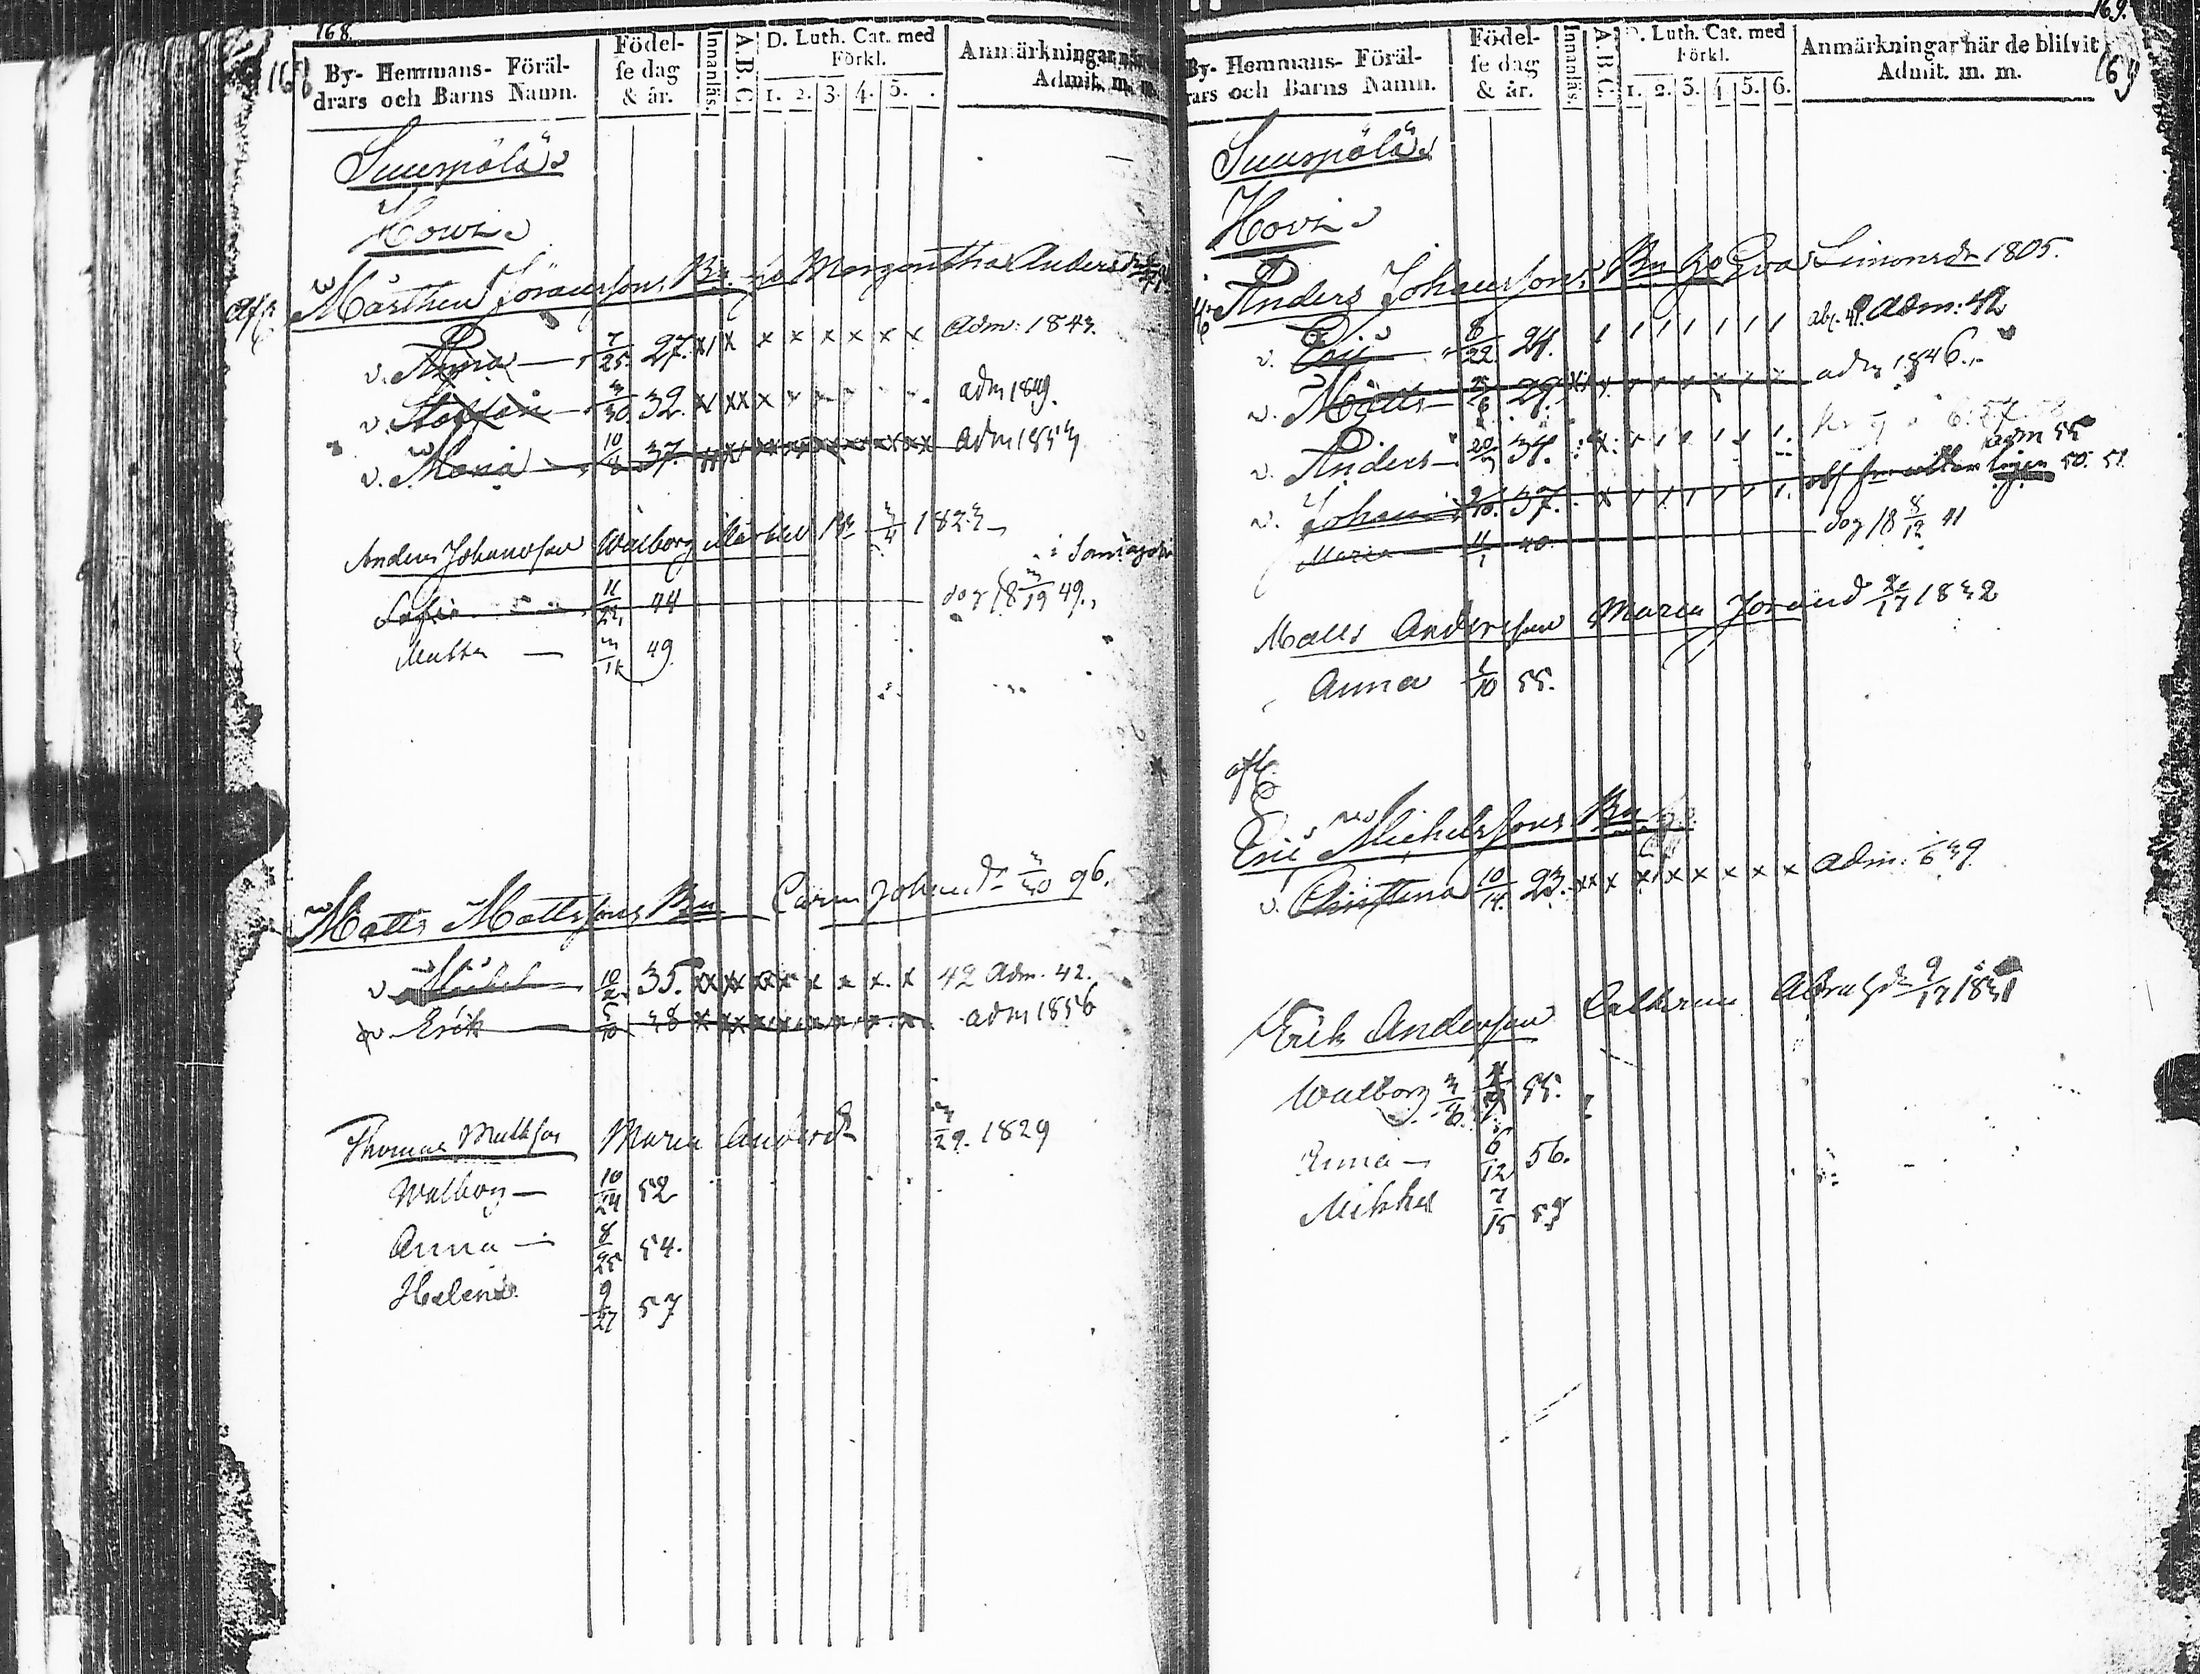 168.
168
By- Hemmans- Föräl-
drars och Barns Namn.
Födel-
se dag
& år.
Innanläs.
A. B. C
D. Luth. Cat. med
Förkl.
1. 2. 3. 4. 5.
Anmärkningar när
Admit. m. m.
Suuspälä
Howi
Mårthen Jöranssons Bn Margaretha Andersdr
v. Anna 7/25. 27. x x x x x x x x Adm: 1843.
v. Staffan 3/30. 32. adm 1849.
v. Maria 10/8 37. adm 1853
Anders Johansson Walborg Mårtens 3/4 1823
Sofia 11/22 44 dog 18 3/19 49.
Matts 3/11 49
Matts Mattssons Bn Carin Johansdr 3/30 96.
v. Michel 10/2 35. 42 Adm. 42.
v. Erik 5/10 38 adm 1856
Thomas Mattsson Maria Andersdr 3/29. 1829
Walborg 10/24 52
Anna 8/25 54.
Helena 9/27 57
169.
169
By- Hemmans- Föräl-
rars och Barns Namn.
Födel-
se dag
& år.
Innanläs.
A. B. C.
D. Luth. Cat. med
Förkl.
1. 2. 3. 4 5. 6.
Anmärkningar när de blifvit
Admit. m. m.
Suuspälä
Hovi
Anders Johanssons Bn Eva Simonsdr 1805.
v. Eric 8/22 24. Adm: 42
v. Matts 29. adm 1846.
v. Anders 20/3 34. adm 55
v. Johan 37. 50. 51
Maria 11/1 40. dog 18 8/12 41
Matts Andersson Maria Jörand 2/17 1832
Anna 1/10 55.
afl.
Eric Michelssons Bn
v. Christina 10/14. 23. x x x x x x x x adm. 39.
Erik Andersson Cathrina Abrahsdr 9/17 1831
Walborg 3/6 55.
Anna 6/12 56.
Mikkel 7/15 59